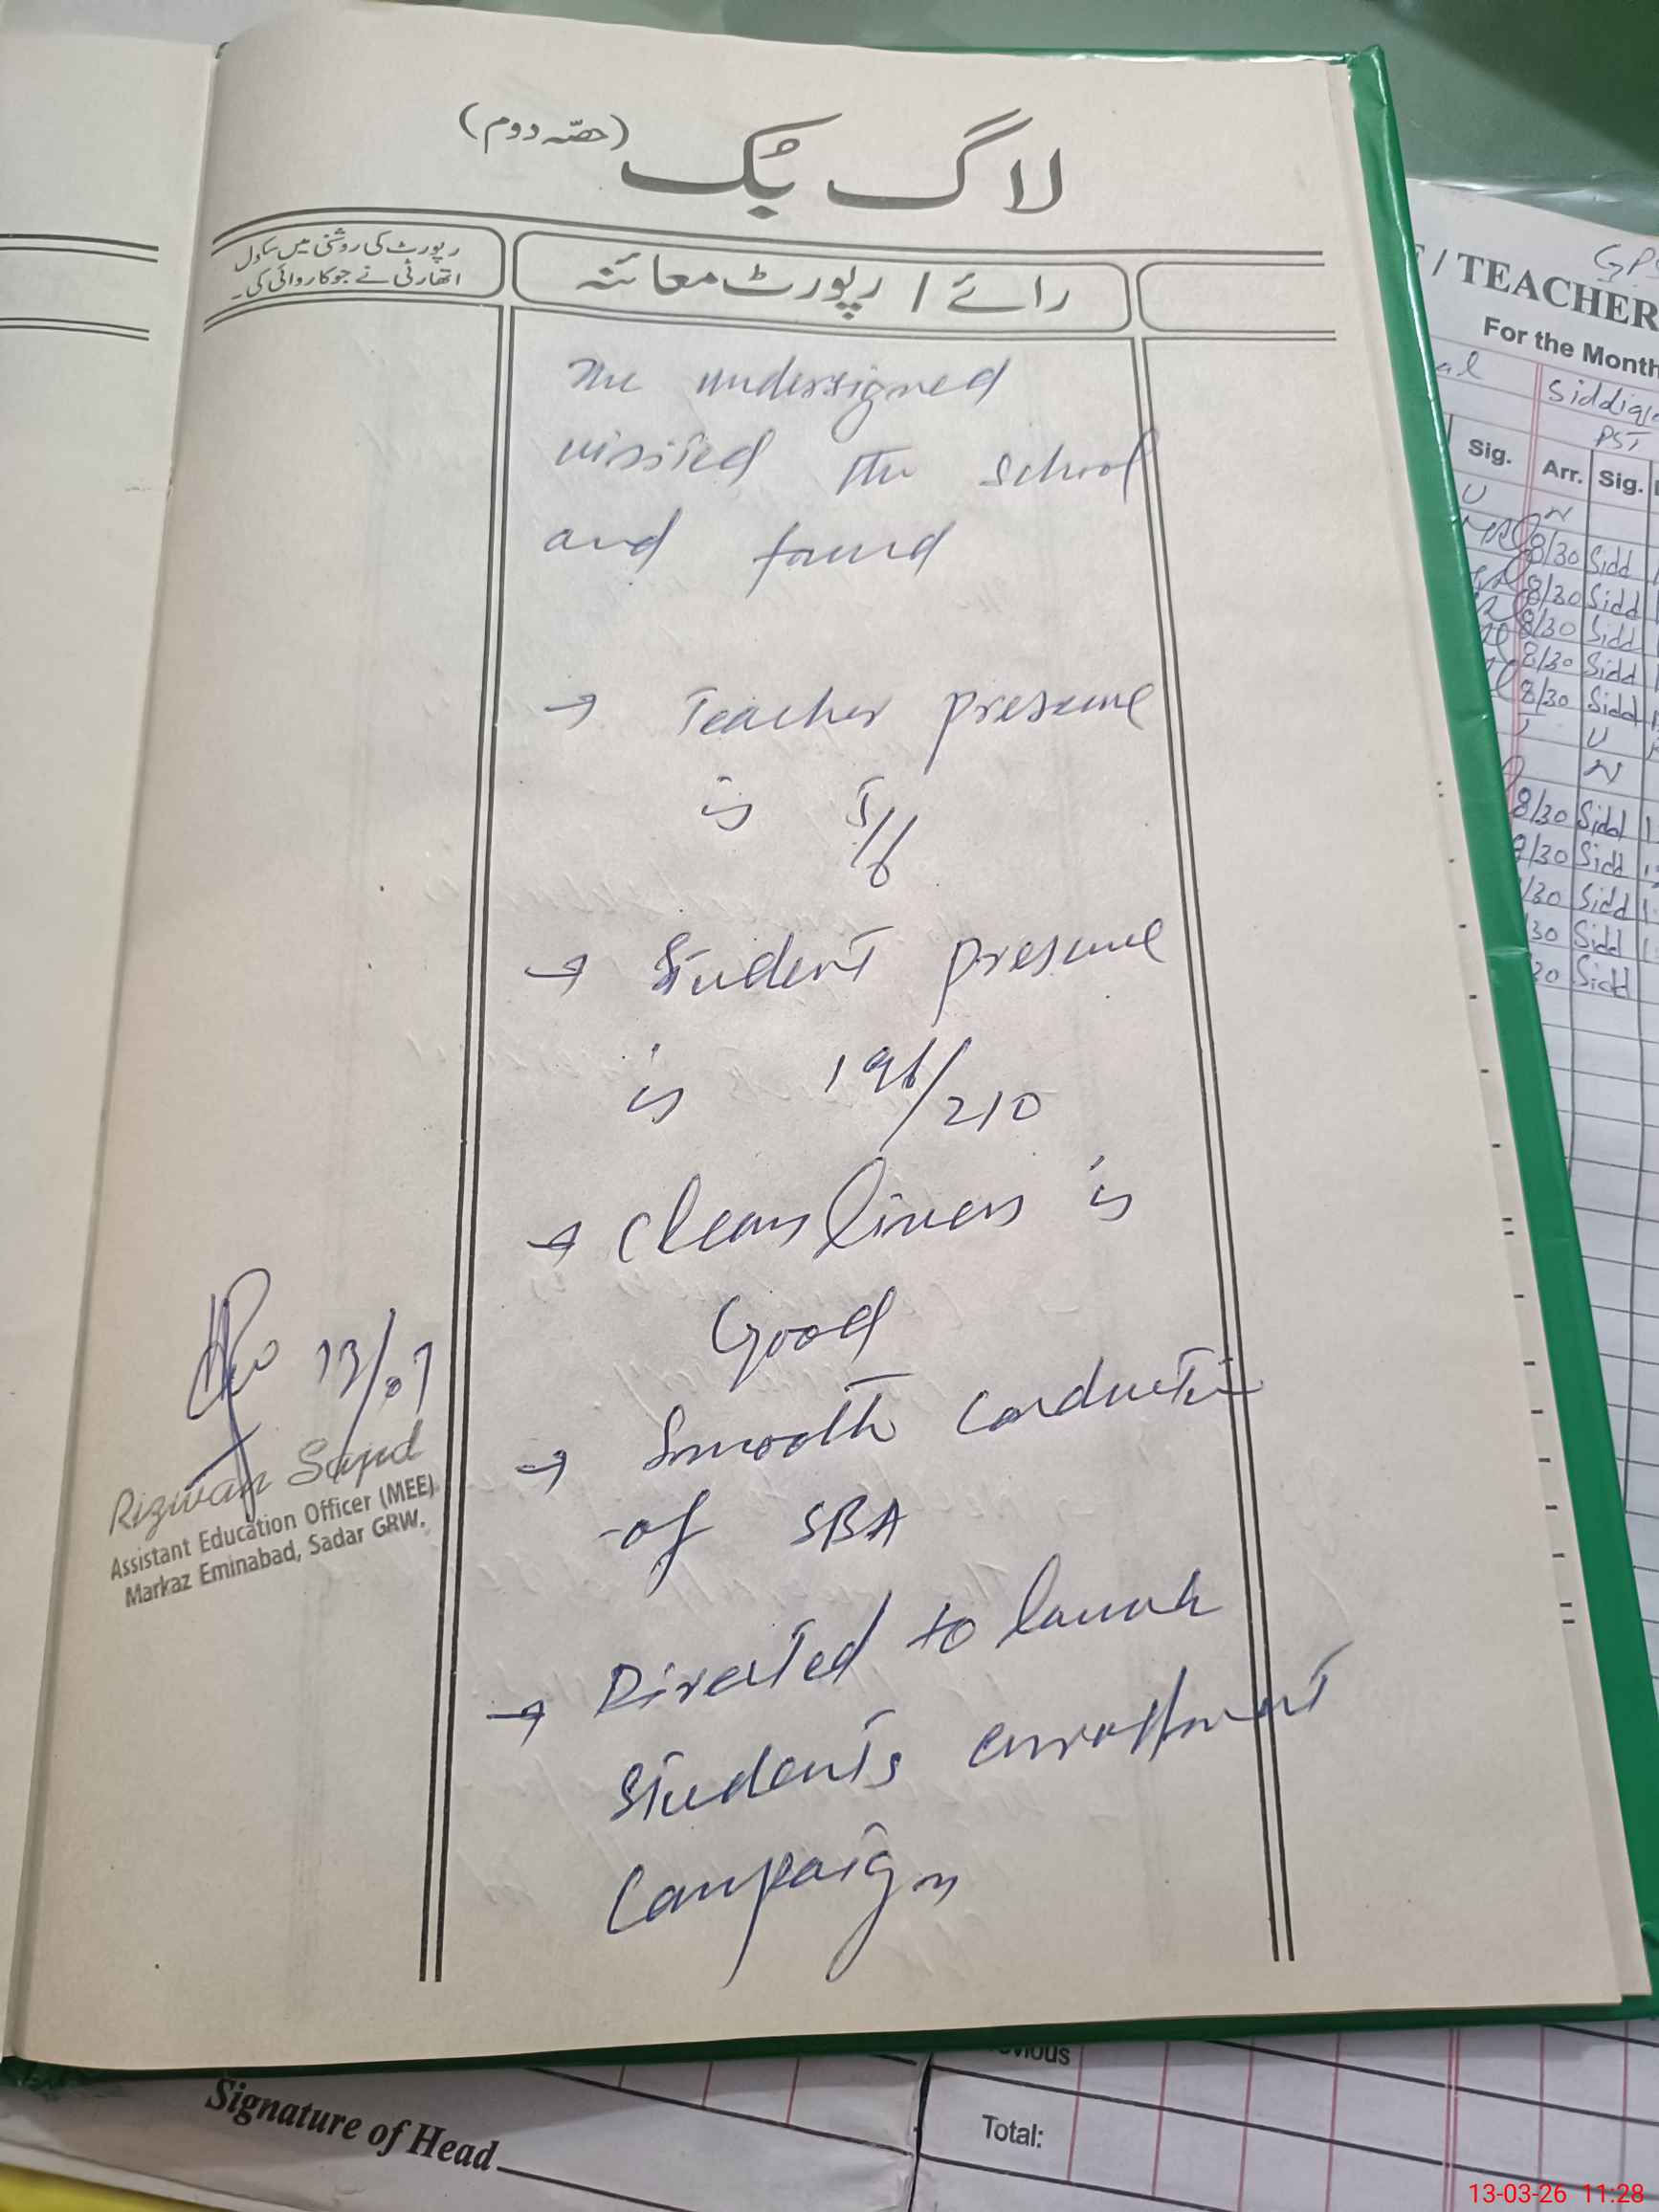 لاگ بک (حصّہ دوم)
رپورٹ کی روشنی میں سکول
اتھارٹی نے جو کاروائی کی۔
رائے / رپورٹ معائنہ
The undersigned
visited the school
and found
→ Teacher presence
is 5/6
→ Student presence
is 196/210
→ Cleanliness is
Good
→ Smooth conduction
of SBA
→ Directed to launch
students enrollment
Campaign
13/03
Rizwan Sajid
Assistant Education Officer (MEE)
Markaz Eminabad, Sadar GRW.
/ TEACHER
For the Month
Siddiq
PST
Sig. Arr. Sig.
8/30 Sidd
8/30 Sidd
8/30 Sidd
8/30 Sidd
8/30 Sidd
8/30 Sidd
/30 Sidd
/30 Sidd
30 Sidd
30 Sidd
Signature of Head
Total:
13-03-26 11:28